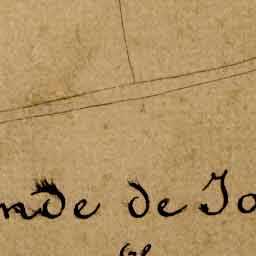 nde de Jo